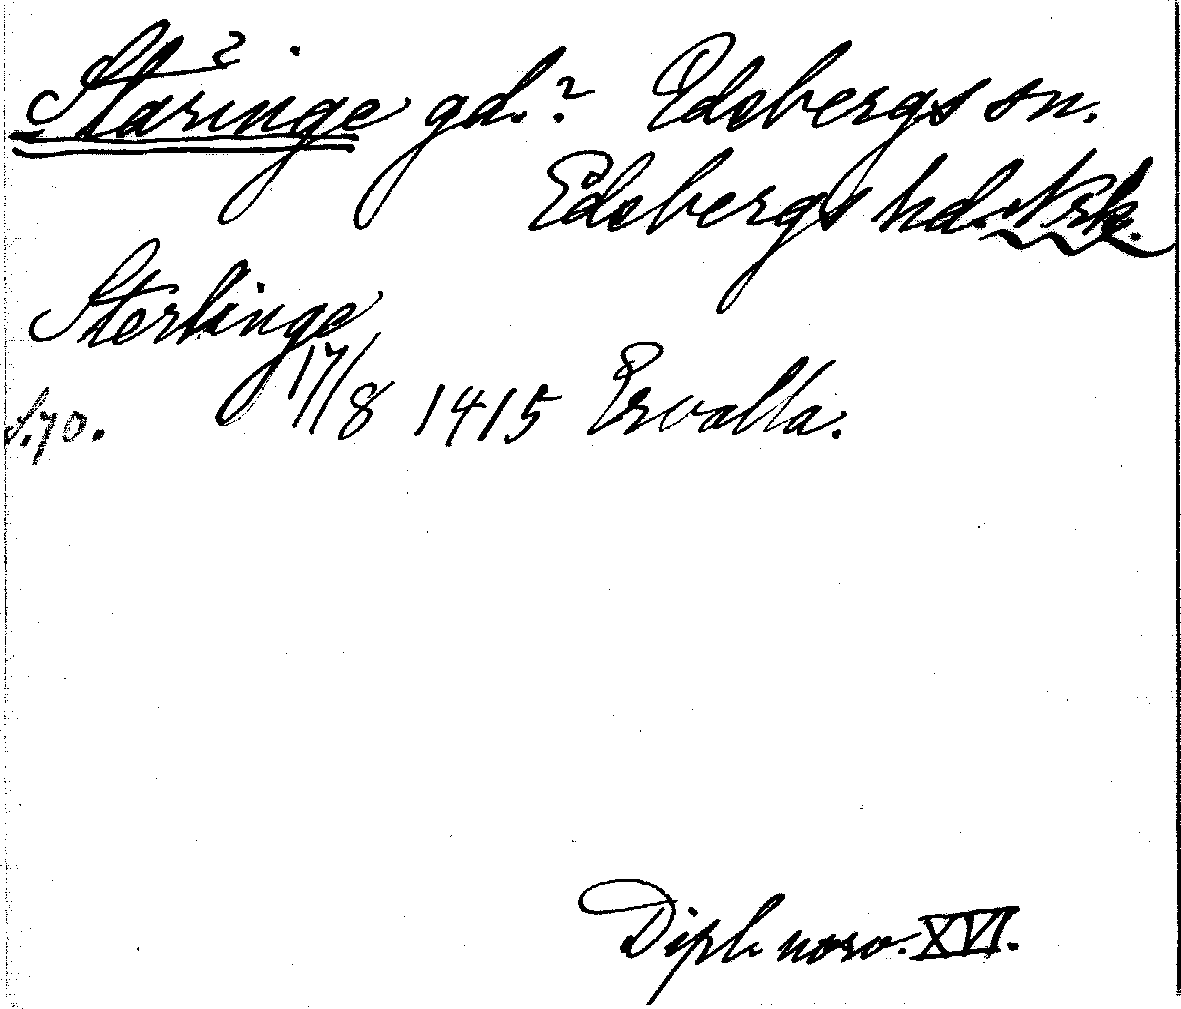 Staringe gd.? Edsbergs sn.
Edsbergs hd. Nrk.
Sterlinge
17/8 1415 Ervalla.
S.70.
Dipl. norv. XVI.